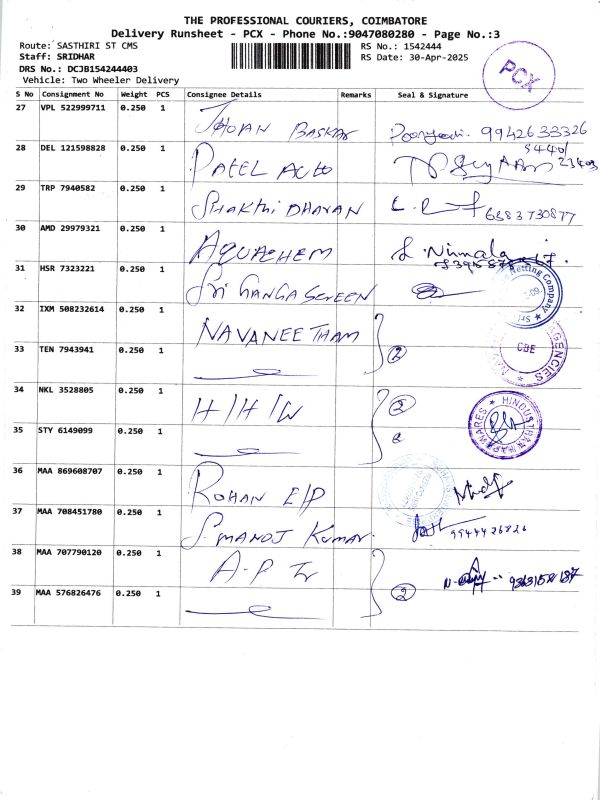 THE PROFESSIONAL COURIERS, COIMBATORE
Delivery Runsheet - PCX - Phone No.:9047080280 - Page No.:3
Route: SASTHIRI ST CMS
RS No.: 1542444
Staff: SRIDHAR
RS Date: 30-Apr-2025
DRS No.: DCJB154244403
Vehicle: Two Wheeler Delivery
PCX
S No Consignment No Weight PCS Consignee Details Remarks Seal & Signature
27 VPL 522999711 0.250 1 BASKAR 9942633326
28 DEL 121598828 0.250 1 PATEL AUTO
29 TRP 7940582 0.250 1 SHAKTHI DHARAN 6383730877
30 AMD 29979321 0.250 1 AQUACHEM S. Nirmala
31 HSR 7323221 0.250 1 Sri GANGA SCREEN
Netting Company
32 IXM 508232614 0.250 1 NAVANEETHAM
33 TEN 7943941 0.250 1 2
CBE
34 NKL 3528805 0.250 1 H/H/W 2
HINDUSTHAN
35 STY 6149099 0.250 1
36 MAA 869608707 0.250 1 ROHAN E/P
37 MAA 708451780 0.250 1 S. MANOJ KUMAR. 9944426826
38 MAA 707790120 0.250 1 A-P
39 MAA 576826476 0.250 1 2